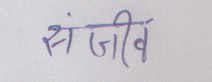 संजीव